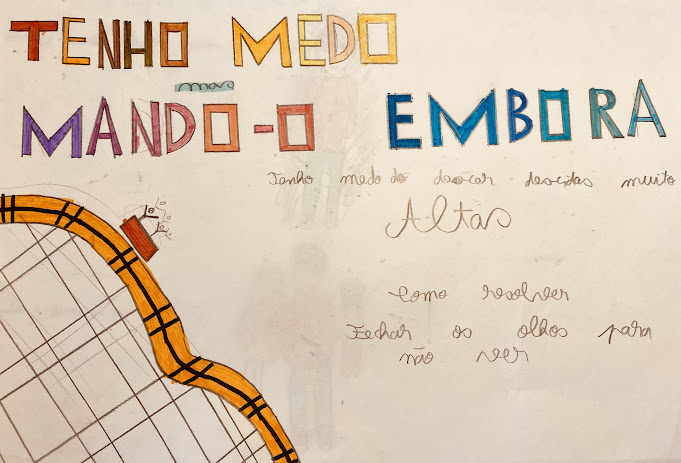 TENHO MEDO
MANDO-O EMBORA
Tenho medo de descer descidas muito
Altas
Como resolver
Fechar os olhos para
não ver